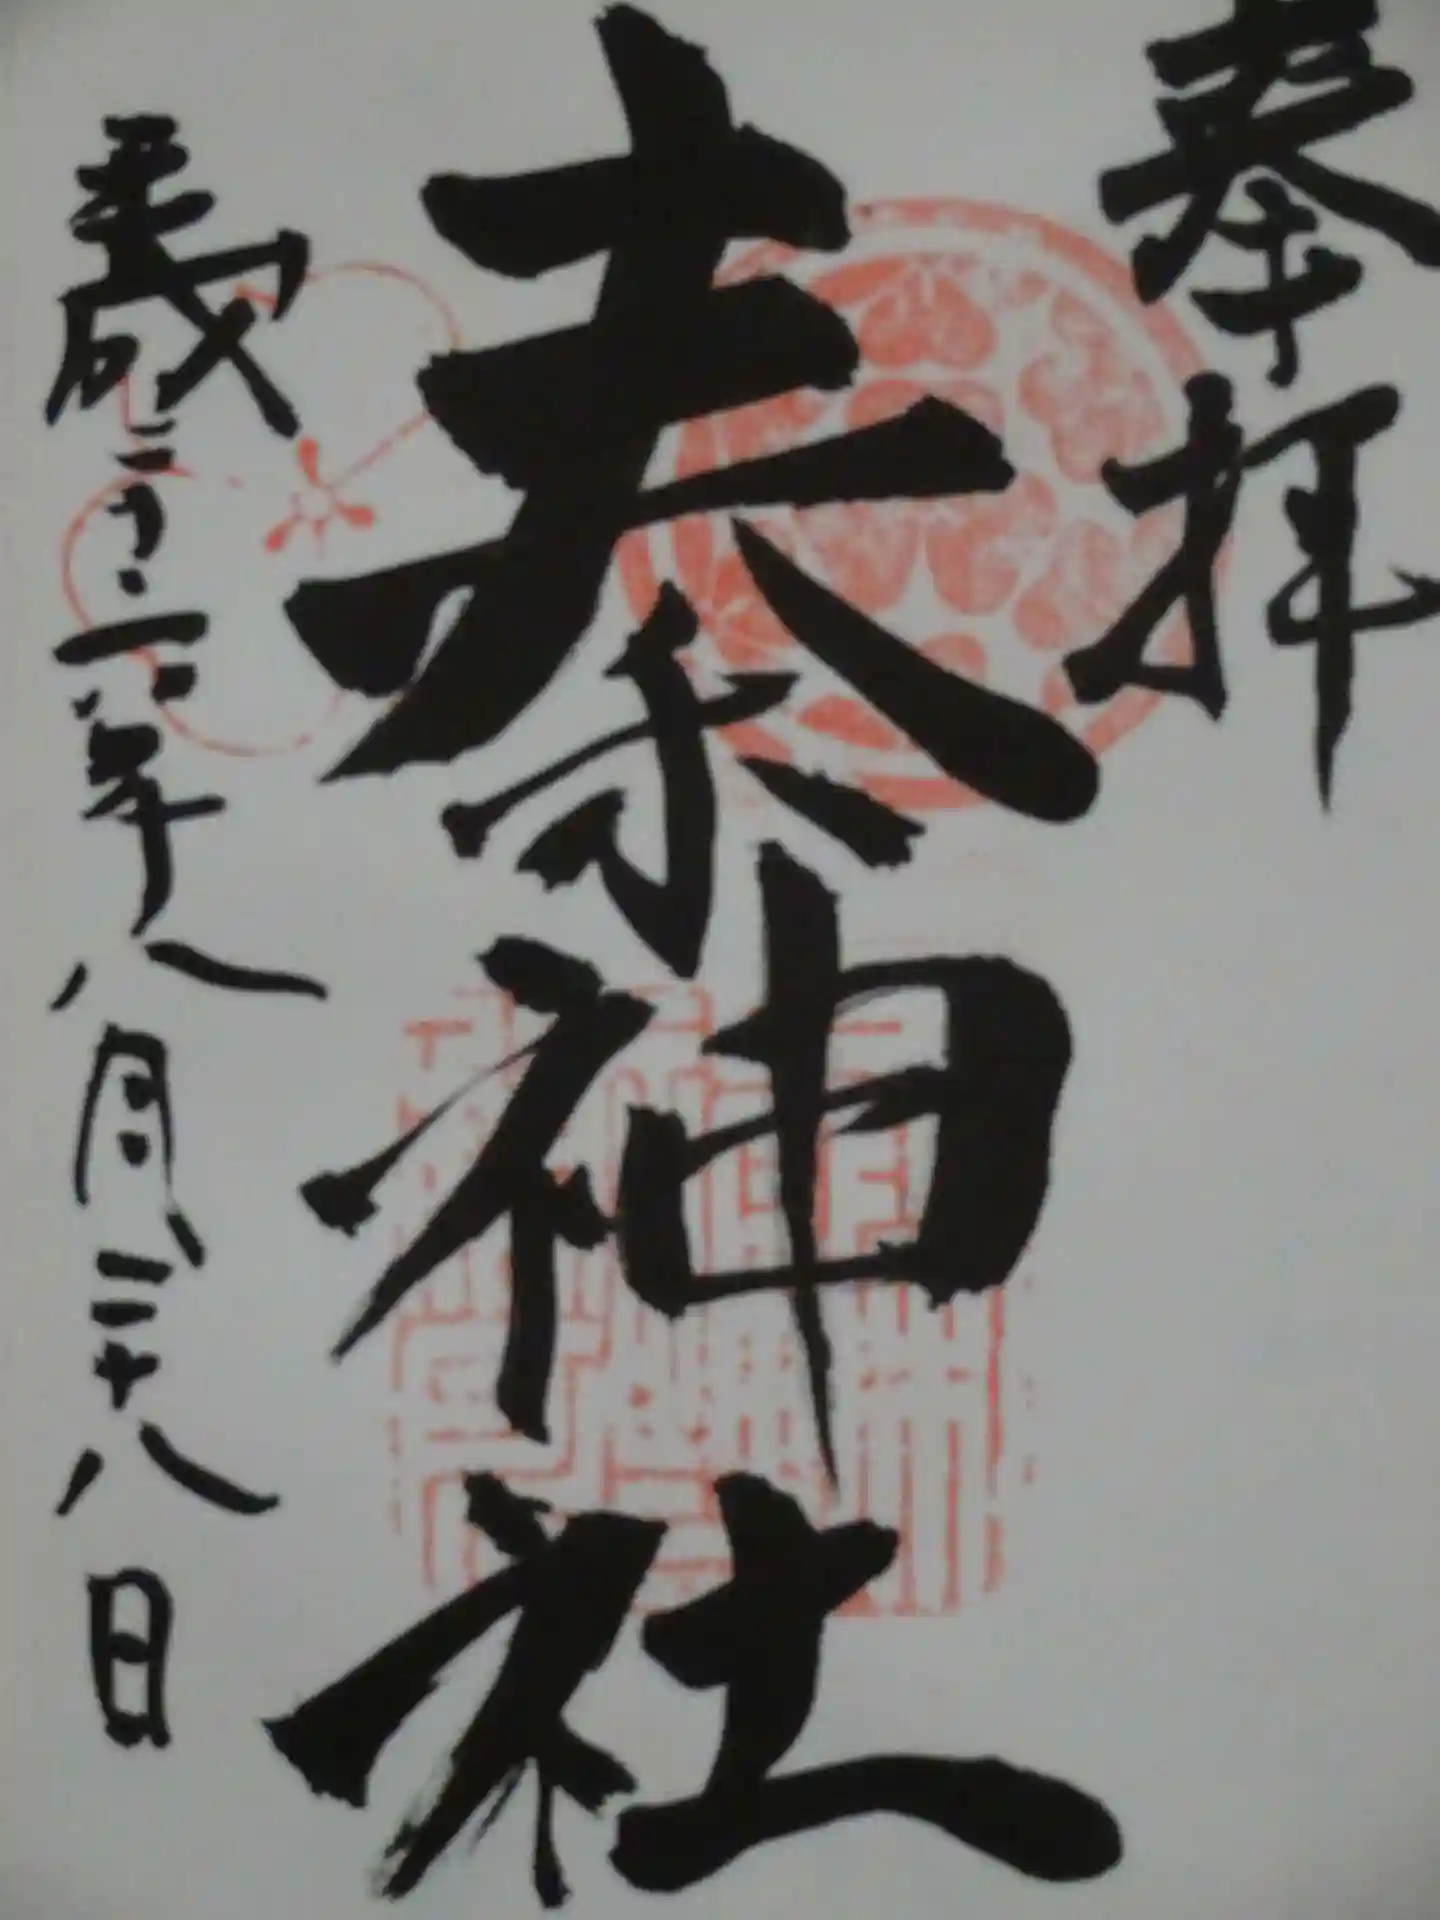 奉拝
秦神社
平成二十二年八月二十八日